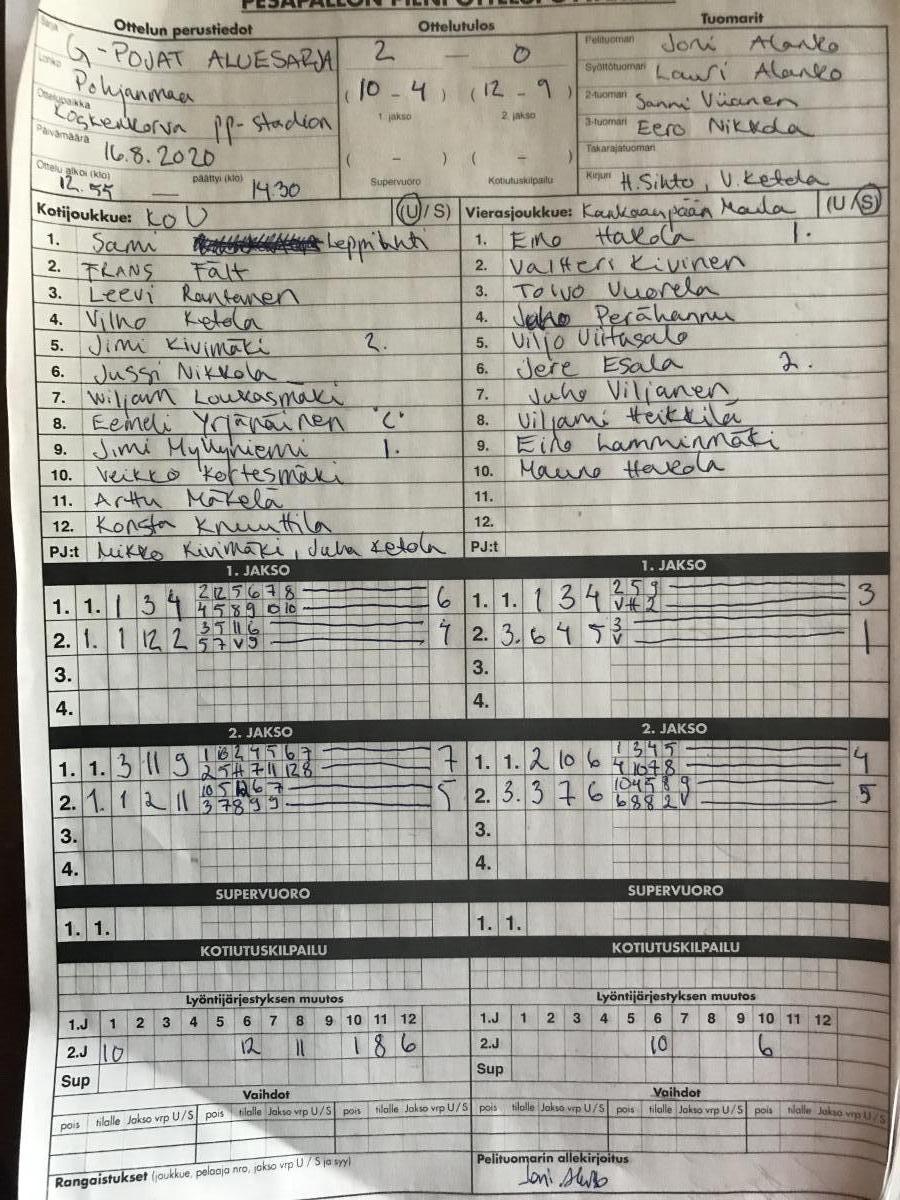 Ottelun perustiedot
Ottelutulos
Tuomarit
Sarja G-POJAT ALUESARJA
Lohko Pohjanmaa
Ottelupaikka Koskenkorva pp-Stadion
Päivämäärä 16.8.2020
Ottelu alkoi (klo) 12.55 — päättyi (klo) 1430
2 — 0
(10 - 4) (12 - 9)
1. jakso 2. jakso
( - ) ( - )
Supervuoro Kotiutuskilpailu
Pelituomari Joni Alanko
Syöttötuomari Lauri Alanko
2-tuomari Sanni Viianen
3-tuomari Eero Nikkola
Takarajatuomari
Kirjuri H.Sihto, V.Ketola
Kotijoukkue: KoU (U/S)
1. Sami Leppilahti
2. FRANS Fält
3. Leevi Rantanen
4. Vilho Ketola
5. Jimi Kivimäki 2.
6. Jussi Nikkola
7. Wiljam Loukasmäki
8. Eemeli Yrjänäinen "C"
9. Jimi Myllyniemi 1.
10. Veikko Kortesmäki
11. Arttu Mäkelä
12. Konsta Knuuttila
PJ:t Mikko Kivimäki, Juha Ketola
Vierasjoukkue: Kankaanpään Maila (U/S)
1. Eino Hakola 1.
2. Valtteri Kivinen
3. Toivo Vuorela
4. Juho Perähannu
5. Viljo Viitasalo
6. Jere Esala 2.
7. Juho Viljanen
8. Viljami Heikkilä
9. Eino Lamminmäki
10. Mauno Hakola
11.
12.
PJ:t
1. JAKSO
1. 1. 1 3 4 2 12 5 6 7 8 6
4 5 8 9 10 10
2. 1. 1 12 2 3 5 11 6 4
5 7 V 9
3.
4.
1. JAKSO
1. 1. 1 3 4 2 5 9 3
V H 2
2. 3. 6 4 5 3 1
V
3.
4.
2. JAKSO
1. 1. 3 11 9 1 10 2 4 5 6 7 7
2 5 H 7 11 12 8
2. 1. 1 2 11 10 5 12 6 7 5
3 7 8 9 9
3.
4.
2. JAKSO
1. 1. 2 10 6 1 3 4 5 4
4 10 7 8
2. 3. 3 7 6 10 4 5 8 9 5
6 8 8 2 V
3.
4.
SUPERVUORO
1. 1.
SUPERVUORO
1. 1.
KOTIUTUSKILPAILU
KOTIUTUSKILPAILU
Lyöntijärjestyksen muutos
1.J 1 2 3 4 5 6 7 8 9 10 11 12
2.J 10 12 11 1 8 6
Sup
Lyöntijärjestyksen muutos
1.J 1 2 3 4 5 6 7 8 9 10 11 12
2.J 10 6
Sup
Vaihdot
pois tilalle Jakso vrp U/S pois tilalle Jakso vrp U/S pois tilalle Jakso vrp U/S
Vaihdot
pois tilalle Jakso vrp U/S pois tilalle Jakso vrp U/S pois tilalle Jakso vrp U/S
Rangaistukset (joukkue, pelaaja nro, jakso vrp U / S ja syy)
Pelituomarin allekirjoitus